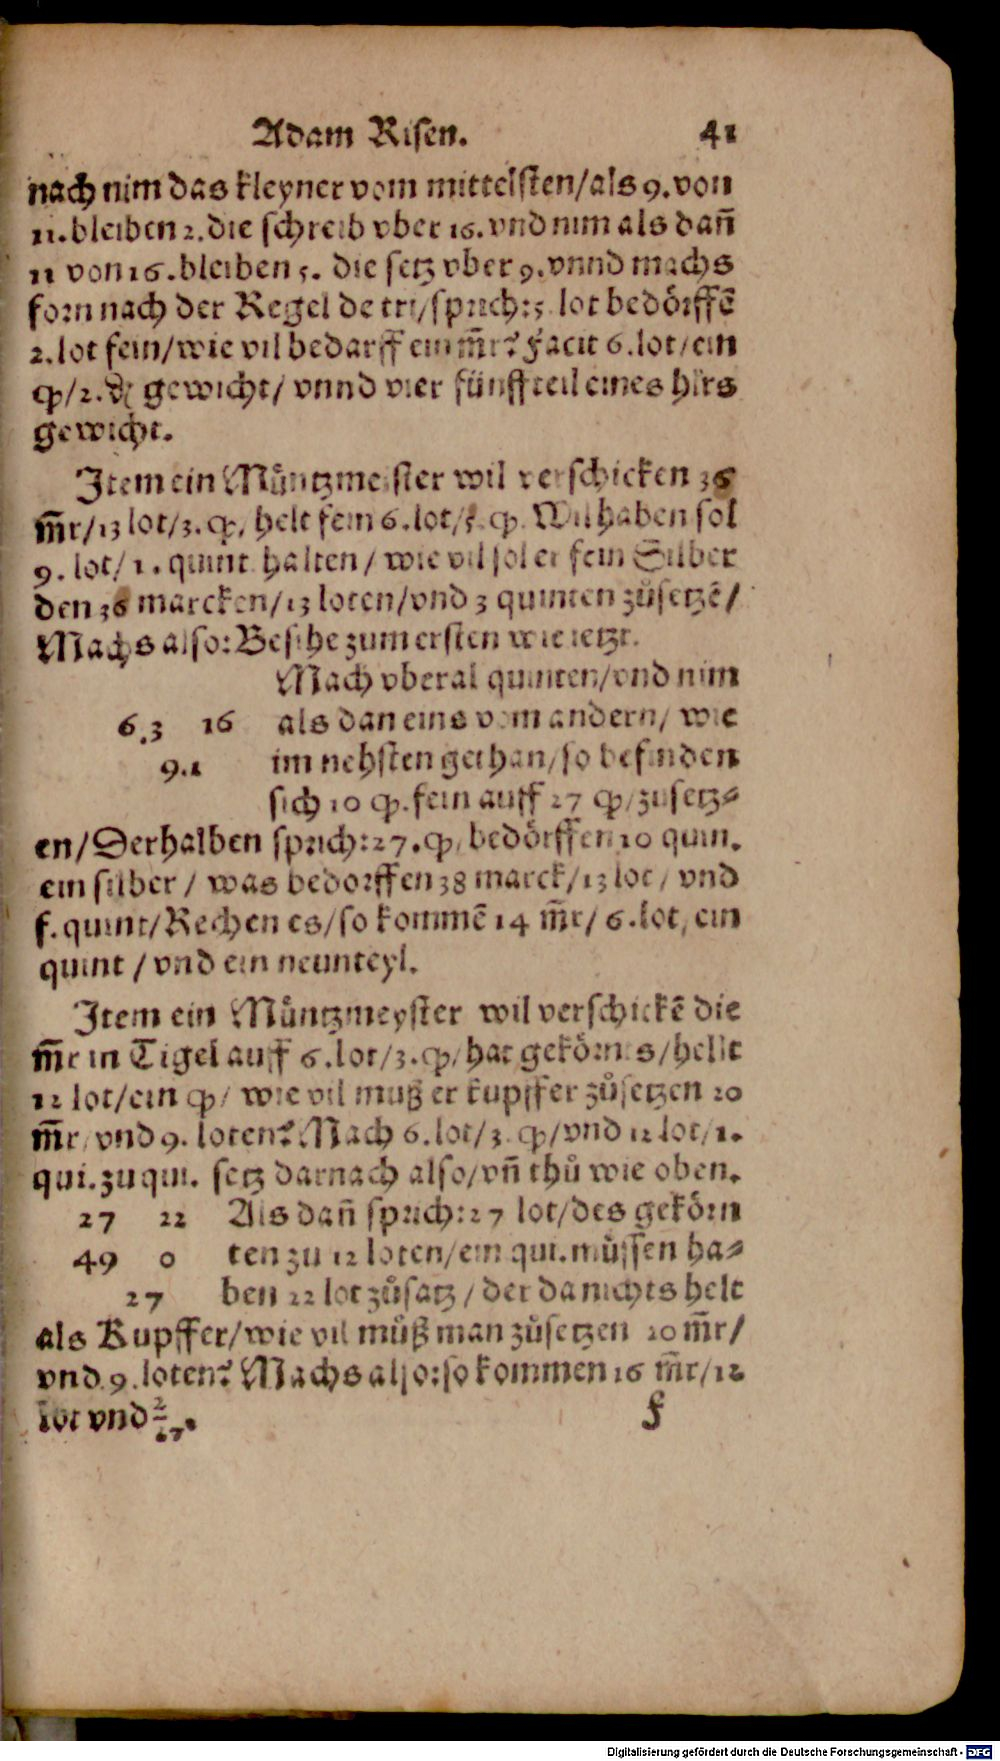 Adam Risen. 41
nach nim das kleyner vom mittelsten/als 9. von
11. bleiben 2. die schreib vber 16. vnd nim als dañ
11 von 16. bleiben 5. die setz vber 9. vnnd machs
forn nach der Regel de tri/sprich: 5 lot bedörffẽ
2. lot fein/wie vil bedarff ein m̃r? Facit 6. lot/ein
qp/2. ₰ gewicht/ vnnd vier fünffteil eines hlrs
gewicht.
Item ein Müntzmeister wil verschicken 36
m̃r/13 lot/3. qp/ helt fein 6. lot/3. qp. Wil haben sol
9. lot/ 1. quint halten/ wie vil sol er fein Silber
den 36 marcken/13 loten/vnd 3 quinten zůsetzẽ/
Machs also: Besihe zum ersten wie ietzt.
Mach vberal quinten/vnd nim
6.3 16 als dan eins vom andern/ wie
9.1 im nehsten gethan/so befinden
sich 10 qp. fein auff 27 qp/zusetz-
en/Derhalben sprich: 27. qp/ bedörffen 10 quin.
ein silber/ was bedorffen 38 marck/13 lot/ vnd
f. quint/Rechen es/so kommẽ 14 m̃r/ 6. lot/ ein
quint/vnd ein neunteyl.
Item ein Müntzmeyster wil verschickẽ die
m̃r in Tigel auff 6. lot/3. qp/hat gekörntes/hellt
12 lot/ein qp/ wie vil muß er kupffer zůsetzen 20
m̃r/vnd 9. loten? Mach 6. lot/3. qp/vnd 12 lot/1.
qui. zu qui. setz darnach also/vñ thů wie oben.
27 22 Als dañ sprich: 27 lot/des gekörn
49 0 ten zu 12 loten/ein qui. müssen ha-
27 ben 22 lot zůsatz/der da nichts helt
als Kupffer/wie vil můß man zůsetzen 20 m̃r/
vnd 9. loten? Machs also: so kommen 16 m̃r/12
lot vnd 2/27.
F
Digitalisierung gefördert durch die Deutsche Forschungsgemeinschaft - DFG